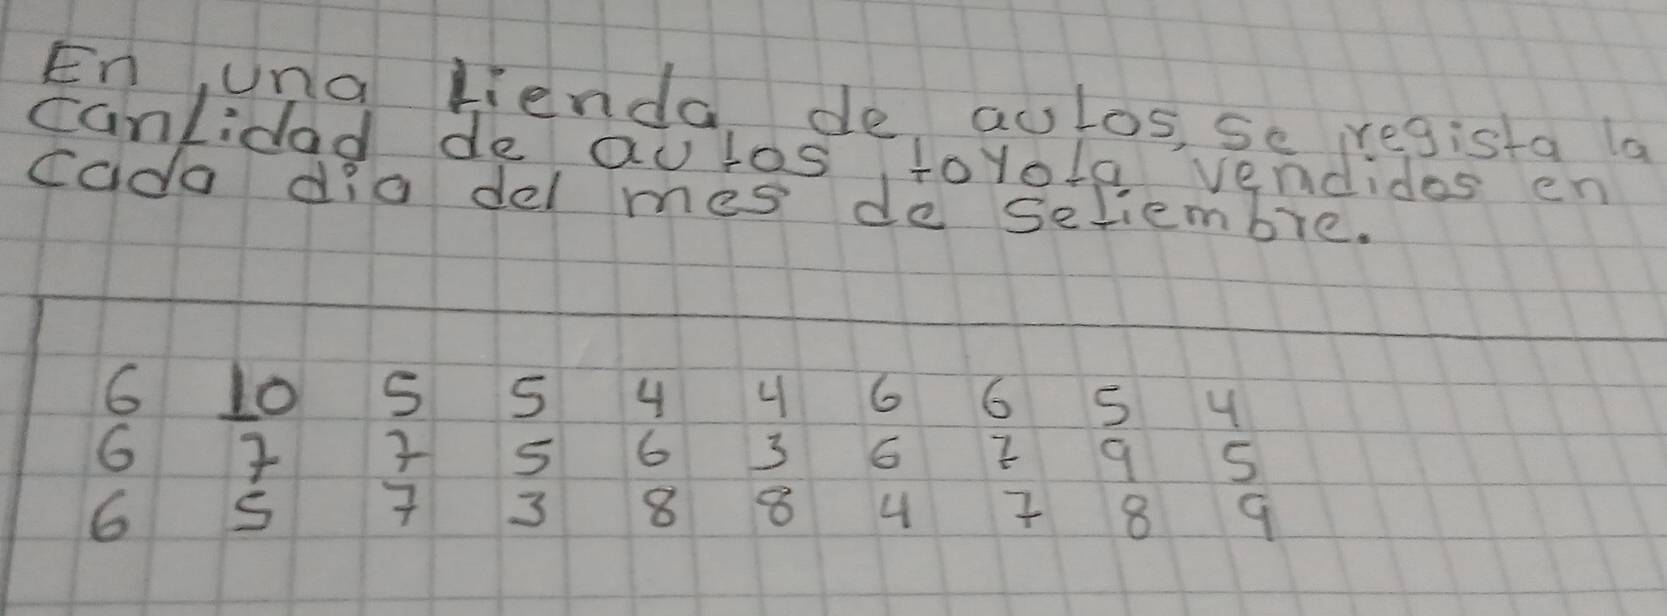 En una tienda de autos, se regista la
cantidad de autos toyota vendidos en
cada dia del mes de setiembre.
6 10 5 5 4 4 6 6 5 4
6 7 7 5 6 3 6 7 9 5
6 5 7 3 8 8 4 7 8 9